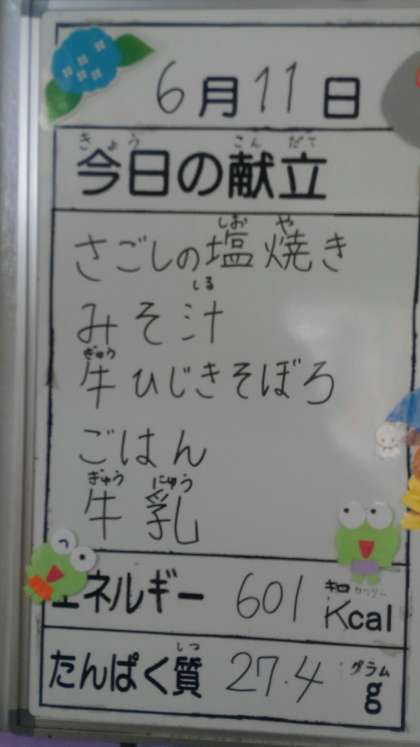 6月11日
きょう こんだて
今日の献立
しお や
さごしの塩焼き
しる
みそ汁
ぎゅう
牛ひじきそぼろ
ごはん
ぎゅう にゅう
牛乳
エネルギー 601 キロカロリー Kcal
しつ グラム
たんぱく質 27.4 g